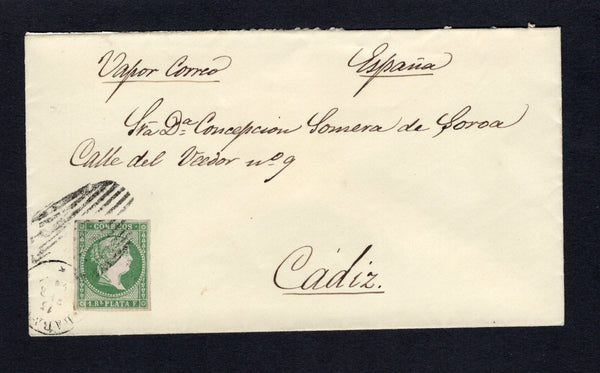 Vapor Correo España
Sra Dª Concepcion Somera de Soroa
Calle del Veedor nº 9
CORREOS
1 Rl PLATA F.
Cádiz.